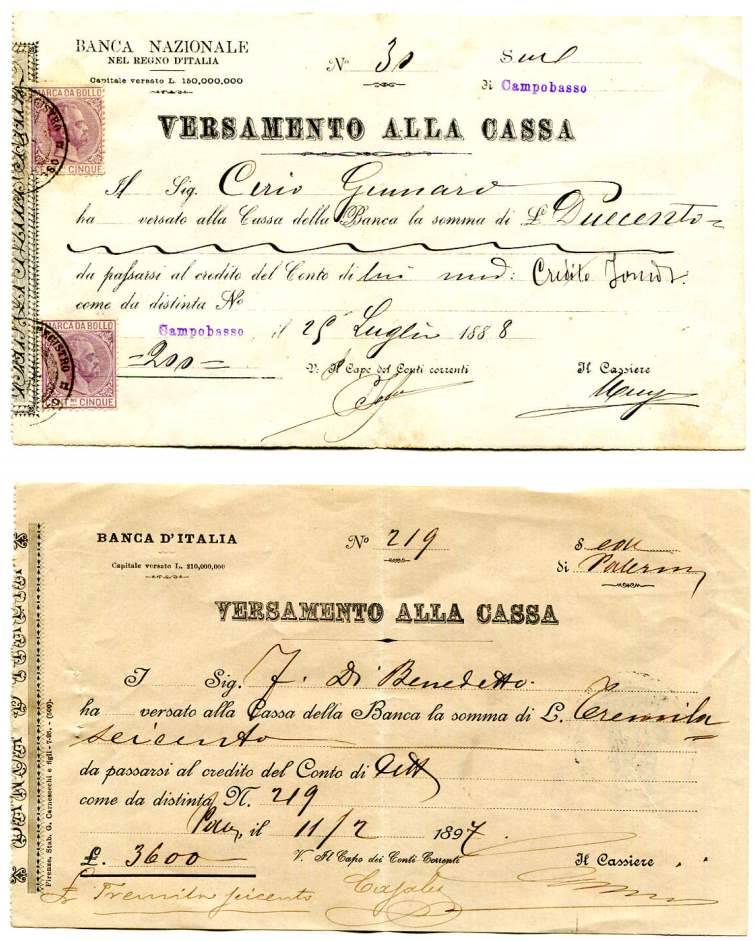 BANCA NAZIONALE
NEL REGNO D'ITALIA
Capitale versato L. 150,000,000
No 30
di Campobasso
VERSAMENTO ALLA CASSA
MARCA DA BOLLO
CINQUE
Il Sig. Cerio Gennaro
ha versato alla Cassa della Banca la somma di L. Duecento
da passarsi al credito del Conto di lui
come da distinta No
Campobasso il 25 Luglio 1888
MARCA DA BOLLO
CT. MI CINQUE
=200=
V. Il Capo dei Conti correnti
Il Cassiere
BANCA D'ITALIA
Capitale versato L. 210,000,000
No 219
Sede
di Palermo
VERSAMENTO ALLA CASSA
I Sig. F. Di Benedetto
ha versato alla Cassa della Banca la somma di L. Tremila
seicento
da passarsi al credito del Conto di
come da distinta N. 219
il 11/2 1897
£. 3600
V. Il Capo dei Conti Correnti
Il Cassiere
Tremila seicento
Firenze, Stab. G. Carnesecchi e figli